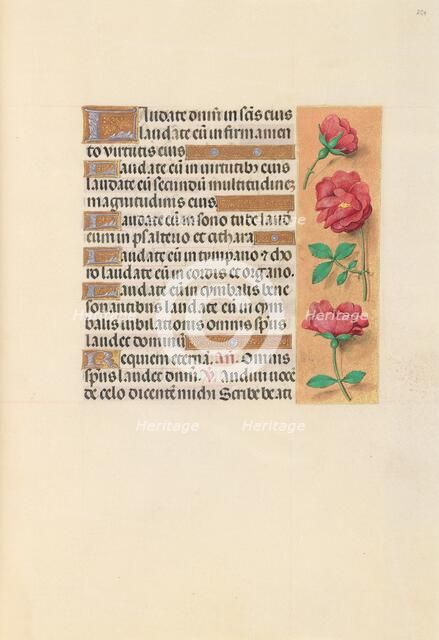 Laudate dnm̄ in scīs eius
laudate eū in firmamen
to virtutis eius
Laudate eū in virtutibꝰ eius
laudate eū secundū multitudinez
magnitudinis eius
Laudate eū in sono tube laud
eum in psalterio et cithara
Laudate eū in tympano ⁊ cho
ro laudate eū in cordis et organo.
Laudate eū in cymbalis bene
sonantibus laudate eū in cym
balis iubilationis omnis sp̄us
laudet dominū
Requiem eternā. an̄. Omnis
sp̄us laudet dnm̄. V. Audiui vocē
de celo dicentē michi Scribe beati
Heritage Heritage Heritage
Heritage Heritage Heritage